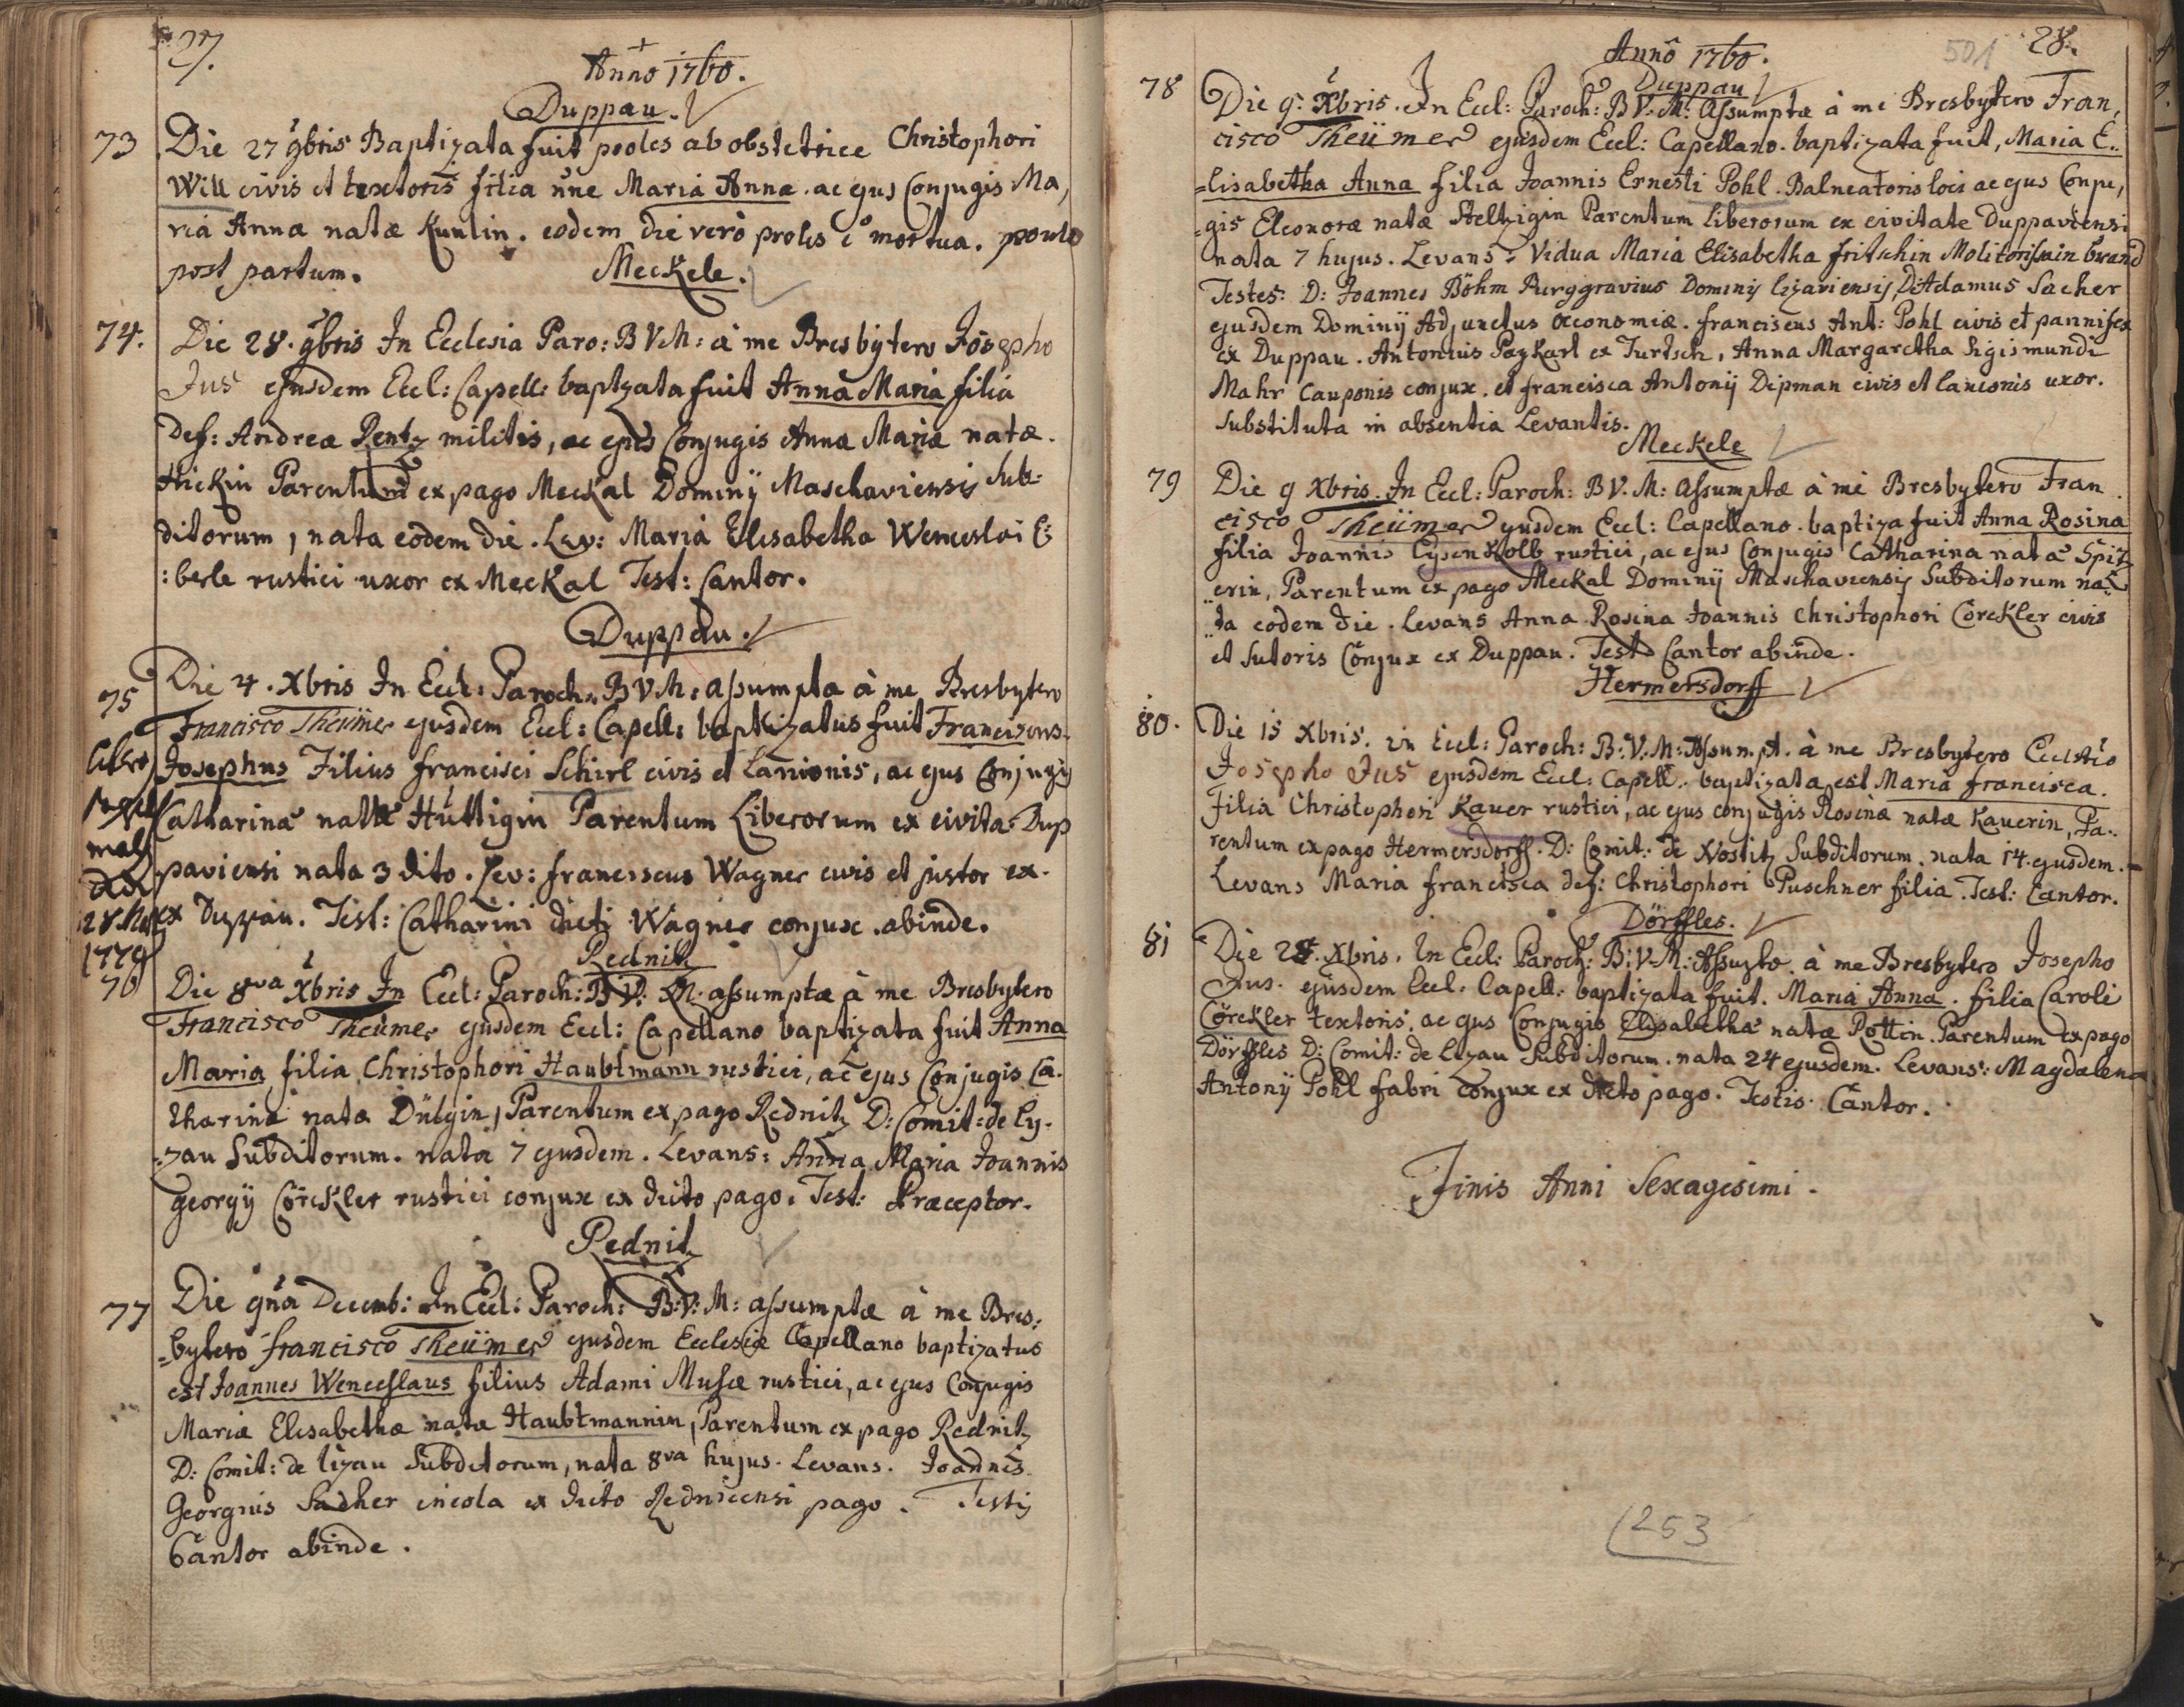 27.
Anno 1760.
Duppau.
73 Die 27 9bris Baptizata fuit prolės ab obstetrice Christophori
Will civis et textoris filia nne Maria Anna. ac ejus Conjugis Ma,
ria Anna natæ Kunlin. eodem die verò proles ē mortua. paulo
post partum.
Meckele.
74. Die 28. 9bris In Ecclesia Paro: B V M: à me Presbytero Josepho
Jus ejusdem Eccl: Capell: baptzata fuit Anna Maria filia
Def: Andreæ Rentz militis, ac ejus Conjugis Annæ Mariæ natæ.
Hickin Parentum ex pago Meckal Dominÿ Maschaviensis Sub:
ditorum, nata eodem die. Lev: Maria Elisabetha Wenceslai E:
:berle rustici uxor ex Meckal Test: Cantor.
Duppau.
75 Die 4. Xbris In Eccl: Paroch: B V M: assumpta à me Presbytero
Francisco Theümer ejusdem Eccl: Capell: baptizatus fuit Franciscus
Josephus Filius Francisci Schirl civis et Lanionis, ac ejus Conjugis
Catharina natæ Hüttigin Parentum Liberorum ex civita: Dup
paviensi nata 3 dito. Lev: Franciscus Wagner civis et pistor ex.
ex Duppau. Test: Catharini dicti Wagner conjux abinde.
28
1779
Rednitz
76 Die 8va Xbris In Eccl: Paroch: B V. M. assumptæ à me Presbytero
Francisco Theümer ejusdem Eccl: Capellano baptizata fuit Anna
Maria filia Christophori Haubtmann rustici, ac ejus Conjugis Ca.
tharinæ natæ Dülgin, Parentum ex pago Rednitz D: Comit: de Ly.
zau Subditorum. nata 7 ejusdem. Levans: Anna Maria Joannis
Georgÿ Görckler rustici conjux ex dicto pago. Test: Præceptor.
Rednitz
77 Die 9na Decemb: In Eccl: Paroch: B: V: M: assumptæ à me Pres:
bytero Francisco Theümer ejusdem Ecclesiæ Capellano baptizatus
est Joannes Wenceslaus filius Adami Musæ rustici, ac ejus Conjugis
Mariæ Elisabethæ natæ Haubtmannin, Parentum ex pago Rednitz
D: Comit: de Lizau Subditorum, nata 8va hujus. Levans. Joannes
Georgius Sacher incola ex dicto Rednicensi pago. Testis
Cantor abinde.
501 28.
Anno 1760.
Duppau
78 Die 9. Xbris. In Eccl: Paroch: B V. M: Assumptæ à me Presbytero Fran,
cisco Theümer ejusdem Eccl: Capellano. baptizata fuit, Maria E..
=lisabetha Anna filia Joannis Ernesti Pohl. Balneatoris loci ac ejus Conju,
=gis Eleonoræ natæ Steltzigin Parentum liberorum ex civitate Duppaviensi
nata 7 hujus. Levans: Vidua Maria Elisabetha Fritschin Molitorissain brand
Testes: D: Joannes Böhm Purggravius Dominÿ Lizaviensis, D: Adamus Sacher
ejusdem Dominÿ Adjunctus Œconomiæ. Franciscus Ant: Pohl civis et pannifex
ex Duppau. Antonius Paykarl ex Turtsch, Anna Margaretha Sigismundi
Mahr Cauponis conjux. et Francisca Antonÿ Dipman civis et lanionis uxor.
Substituta in absentia Levantis.
Meckele
79 Die 9 Xbris. In Eccl: Paroch: B V. M: Assumptæ à me Presbytero Fran
cisco Theümer ejusdem Eccl: Capellano. baptiza fuit Anna Rosina
filia Joannis Eysenkolb rustici, ac ejus Conjugis Catharina nata Spitz
erin, Parentum ex pago Meckal Dominÿ Maschaviensis Subditorum na=
ta eodem die. Levans Anna Rosina Joannis Christophori Görckler civis
et Sutoris Conjux ex Duppau. Test: Cantor abinde.
Hermersdorff
80. Die 15 Xbris. in Eccl: Paroch: B: V: M: Assumpt. à me Presbytero
Josepho Jus ejusdem Eccl: Capell: baptizata est Maria Francisca.
Filia Christophori Kauer rustici, ac ejus conjugis Rosinæ natæ Kauerin, Pa..
rentum ex pago Hermersdorff. D: Comit: de Nostitz Subditorum. nata 14. ejusdem.
Levans Maria Francisca def: Christophori Puschner filia. Test: Cantor.
Dörffles.
81 Die 25. Xbris. In Eccl: Paroch: B: V: M: Assupto. à me Presbytero Josepho
Jus. ejusdem Eccl: Capell: baptizata fuit. Maria Anna. filia Caroli
Görckler textoris, ac ejus Conjugis Elisabetha natæ Pottin. Parentum ex pago
Dörffles D: Comit: de Lizau Subditorum. nata 24 ejusdem. Levans: Magdalena
Antonÿ Pohl fabri conjux ex dicto pago. Testis. Cantor.
Finis Anni Sexagesimi.
253